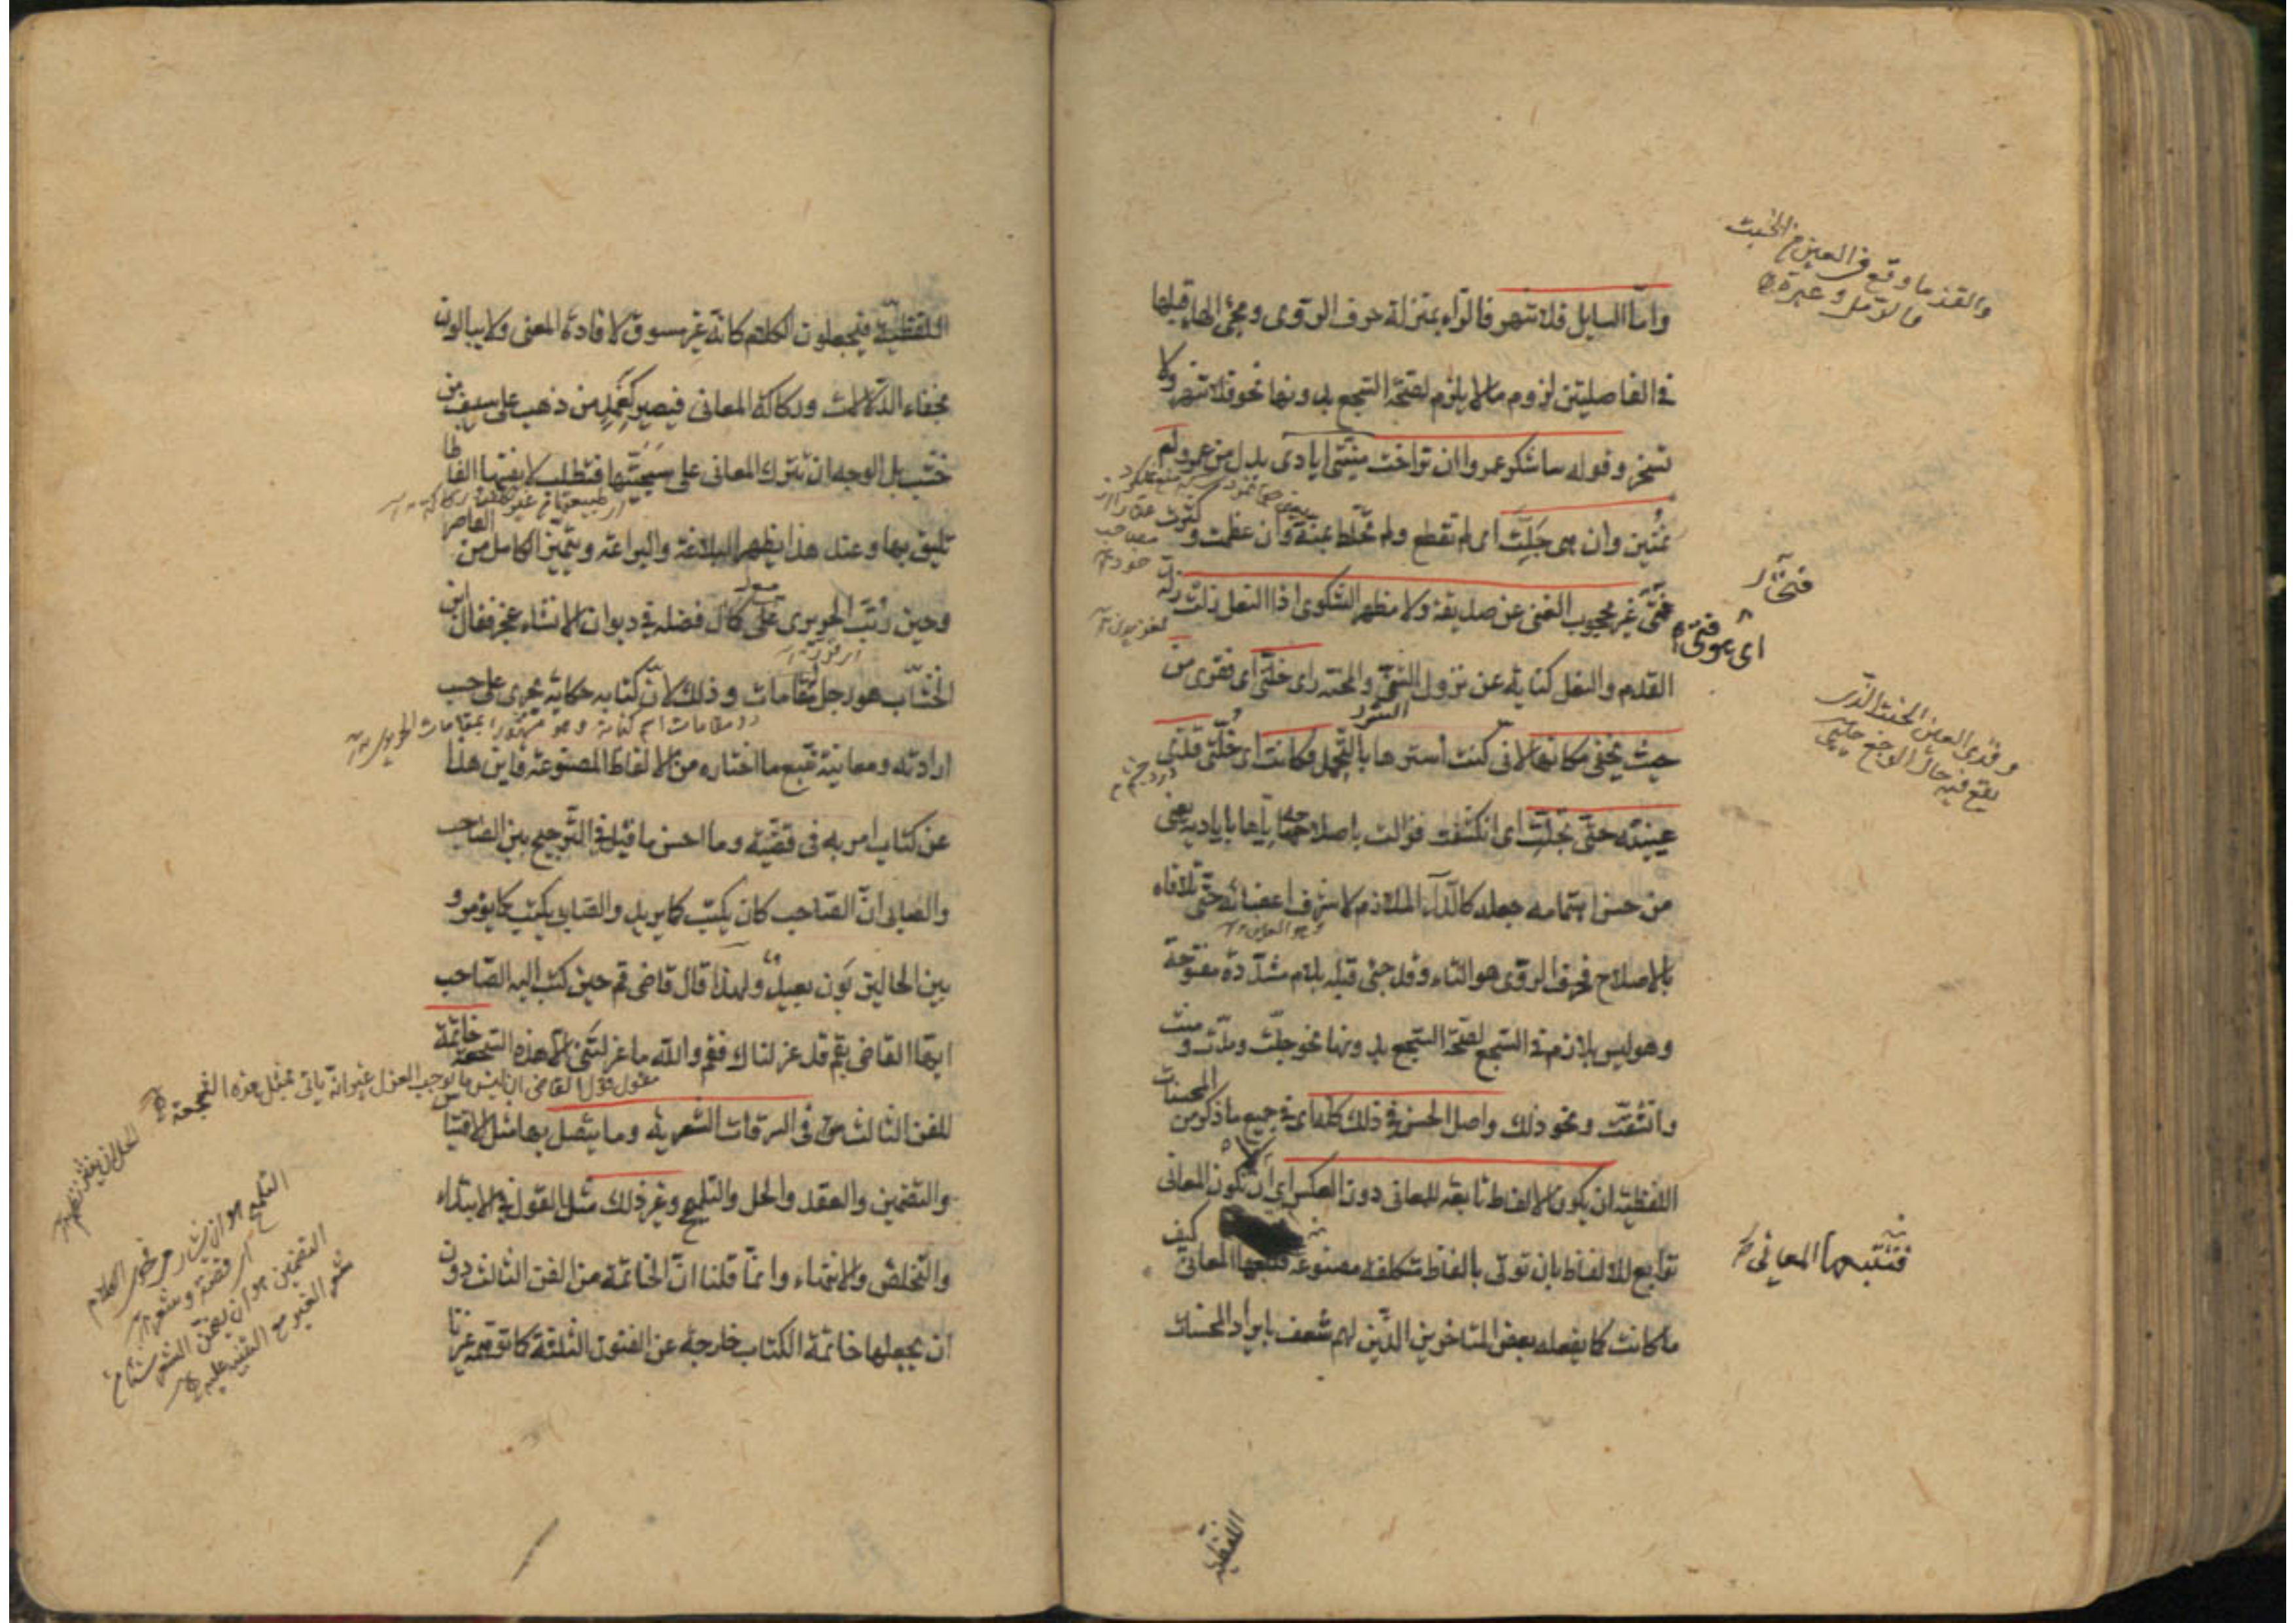 واما السايل فلا تنهر فالراء بمنزلة حرف الروى ومجئ الهاء قبلها
فى الفاصلتين لزوم ما لا يلزم لصحة السجع بدونها نحو فلا تنهر ولا
تسخر وقوله ساشكر عمروا ان تراخت منيتى ايادى بدل من عمرو لم
تمنن وان هى جلت اى لم تقطع ولم تخلط بمنة وان عظمت وكثرت
فتى غير محجوب الغنى عن صديقه ولا مظهر الشكوى اذا النعل زلت زلة
القدم والنعل كناية عن نزول الشر والمحنة راى خلتى اى فقرى من
حيث يخفى مكانها لانى كنت استرها بالتجمل فكانت اى خلتى قذى
عينيه حتى تجلت اى انكشفت وزالت باصلاحه اياها باياديه يعنى
من حسن اهتمامه جعله كالداء الملازم لاشرف اعضائه حتى تلافاه
بالاصلاح فحرف الروى هو التاء وقد جئ قبله بلام مشددة مفتوحة
وهو ليس بلازم فى السجع لصحة السجع بدونها نحو جلت ومدت ومنت
وانشقت ونحو ذلك واصل الحسن فى ذلك كله اى فى جميع ما ذكر من المحسنات
اللفظية ان يكون الالفاظ تابعة للمعانى دون العكس اى لا ان تكون المعانى
توابع للالفاظ بان توتى بالفاظ متكلفة مصنوعة فتتبعها المعانى كيف
ما كانت كما يفعله بعض المتاخرين الذين لهم شعف بايراد المحسنات
اللفظية
والقذ ما وقع فى العين من الخبث
كالرمل وغيره
فتختار
اى هو فتى
وقذى العين الخبث الذى
يقع فيه حال الوجع
فتتبعها المعانى
اللفظية فيجعلون الكلام كانه غير مسوق لافادة المعنى ولا يبالون
بخفاء الدلالات وركاكة المعانى فيصير كغمد من ذهب على سيف من
خشب بل الوجه ان تترك المعانى على سجيتها فتطلب لانفسها الفاظا
تليق بها وعند هذا يظهر البلاغة والبراعة ويتميز الكامل من القاصر
وحين رتب الحريرى مع كمال فضله فى ديوان الانشاء عجز فقال ابن
الخشاب هو رجل مقامات وذلك لان كتابه حكاية تجرى على حسب
ارادته ومعانيه تتبع ما اختاره من الالفاظ المصنوعة فاين هذا
عن كتاب امر به فى قضية وما احسن ما قيل فى الترجيح بين الصاحب
والصابى ان الصاحب كان يكتب كما يريد والصابى يكتب كما يؤمر و
بين الحالين بون بعيد ولهذا قال قاضى قم حين كتب اليه الصاحب
ايها القاضى بقم قد عزلناك فقم والله ما عزلتنى الا هذه السجعة خاتمة
للفن الثالث فى السرقات الشعرية وما يتصل بها مثل الاقتباس
والتضمين والعقد والحل والتلميح وغير ذلك مثل القول فى الابتداء
والتخلص والانتهاء وانما قلنا ان الخاتمة من الفن الثالث دون
ان يجعلها خاتمة الكتاب خارجة عن الفنون الثلثة كما توهمه غيرنا
التلميح هو ان يشار فى فحوى الكلام
قصة وشعر
التضمين هو ان يضمن الشعر شيئا من
شعر الغير مع التنبيه عليه